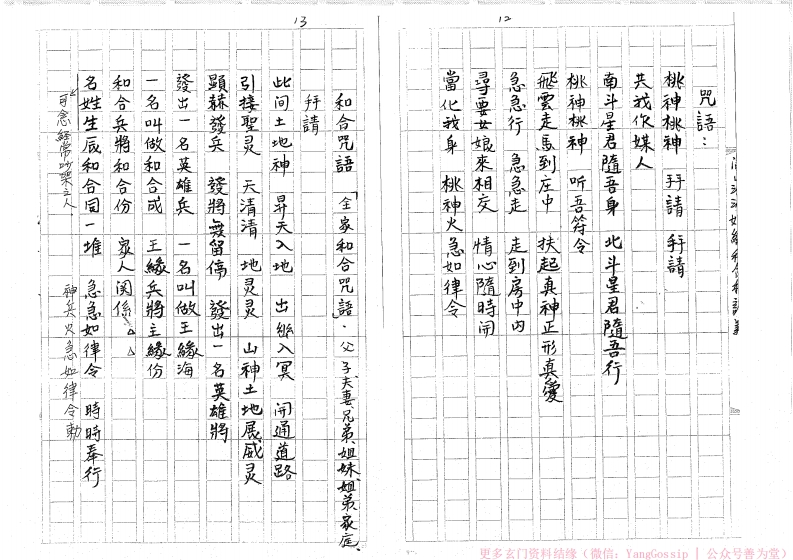 12
咒語：
桃神桃神　拜請　拜請
共我作媒人
南斗星君隨吾身　北斗星君隨吾行
桃神桃神　听吾符令
飛雲走馬到庄中　扶起真神正形真愛
急急行　急急走　走到房中内
尋要女娘來相交　情心隨時開
當化我身　桃神火　急如律令
13
和合咒語「全家和合咒語」．父子、夫妻、兄弟、姐妹、姐弟、家庭、
拜請
此间土地神　昇天入地　出幽入冥　開通道路
引接聖灵　天清清　地灵灵　山神土地展威灵
顯赫發兵　發將無留停　發出一名英雄將
發出一名英雄兵　一名叫做王緣海
一名叫做和合成　王緣兵將主緣份
和合兵將和合份　家人関係△△
名姓生辰和合同一堆　急急如律令　時時奉行
可念經常吵架之人　神兵火急如律令勅
更多玄门资料结缘（微信：YangGossip | 公众号善为堂）